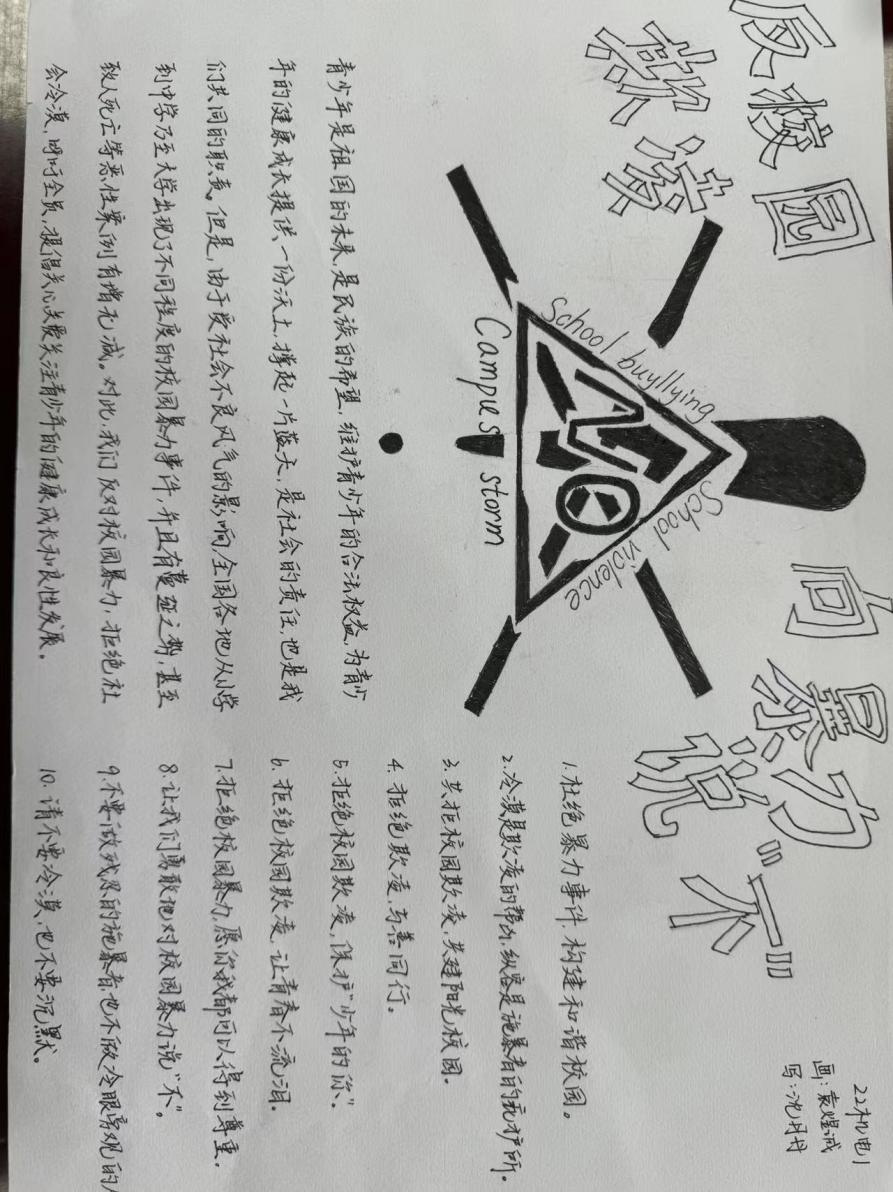 反校园
欺凌
向暴力
说"不"
22机电1
画:袁煜诚
写:沈月丹
School buyllying
School vidence
NO
Campues storm
青少年是祖国的未来,是民族的希望,维护青少年的合法权益,为青少
年的健康成长提供一份沃土,撑起一片蓝天,是社会的责任,也是我
们共同的职责。但是,由于受社会不良风气的影响,全国各地从小学
到中学乃至大学出现了不同程度的校园暴力事件,并且有蔓延之势,甚至
致人死亡等恶性案例有增无减。对此,我们反对校园暴力,拒绝社
会冷漠,呼吁全员,提倡关心友爱关注青少年的健康成长和良性发展。
1.杜绝暴力事件,构建和谐校园。
2.冷漠是欺凌的帮凶,纵容是施暴者的庇护所。
3.共拒校园欺凌,共建阳光校园。
4.拒绝欺凌,与善同行。
5.拒绝校园欺凌,保护"少年的你"。
6.拒绝校园欺凌,让青春不流泪。
7.拒绝校园暴力,愿你我都可以得到尊重。
8.让我们勇敢地对校园暴力说"不"。
9.不要做残忍的施暴者,也不做冷眼旁观的
10.请不要冷漠,也不要沉默。